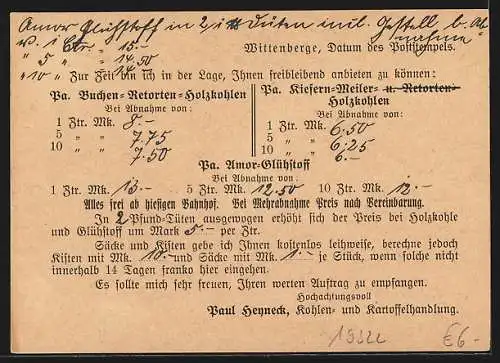 Amor Glühstoff in 2 ℔ Düten inkl. Gestell b. Ab
v. 1 Ctr. " 15.- nahme
" 5 " " 14,50
" 10 " " 14.-
Wittenberge, Datum des Poststempels.
Zur Zeit bin ich in der Lage, Ihnen freibleibend anbieten zu können:
Pa. Buchen-Retorten-Holzkohlen
Bei Abnahme von:
1 Ztr. Mk. 8.-
5 " " 7.75
10 " " 7.50
Pa. Kiefern-Meiler- u. Retorten-
Holzkohlen
Bei Abnahme von:
1 Ztr. Mk. 6,50
5 " " 6,25
10 " " 6.-
Pa. Amor-Glühstoff
Bei Abnahme von:
1 Ztr. Mk. 13.- 5 Ztr. Mk. 12.50 10 Ztr. Mk. 12.-
Alles frei ab hiesigen Bahnhof. Bei Mehrabnahme Preis nach Vereinbarung.
In 2 Pfund-Tüten ausgewogen erhöht sich der Preis bei Holzkohle
und Glühstoff um Mark 5.- per Ztr.
Säcke und Kisten gebe ich Ihnen kostenlos leihweise, berechne jedoch
Kisten mit Mk. 10.- und Säcke mit Mk. 1.- je Stück, wenn solche nicht
innerhalb 14 Tagen franko hier eingehen.
Es sollte mich sehr freuen, Ihren werten Auftrag zu empfangen.
Hochachtungsvoll
Paul Heyneck, Kohlen- und Kartoffelhandlung.
€6-